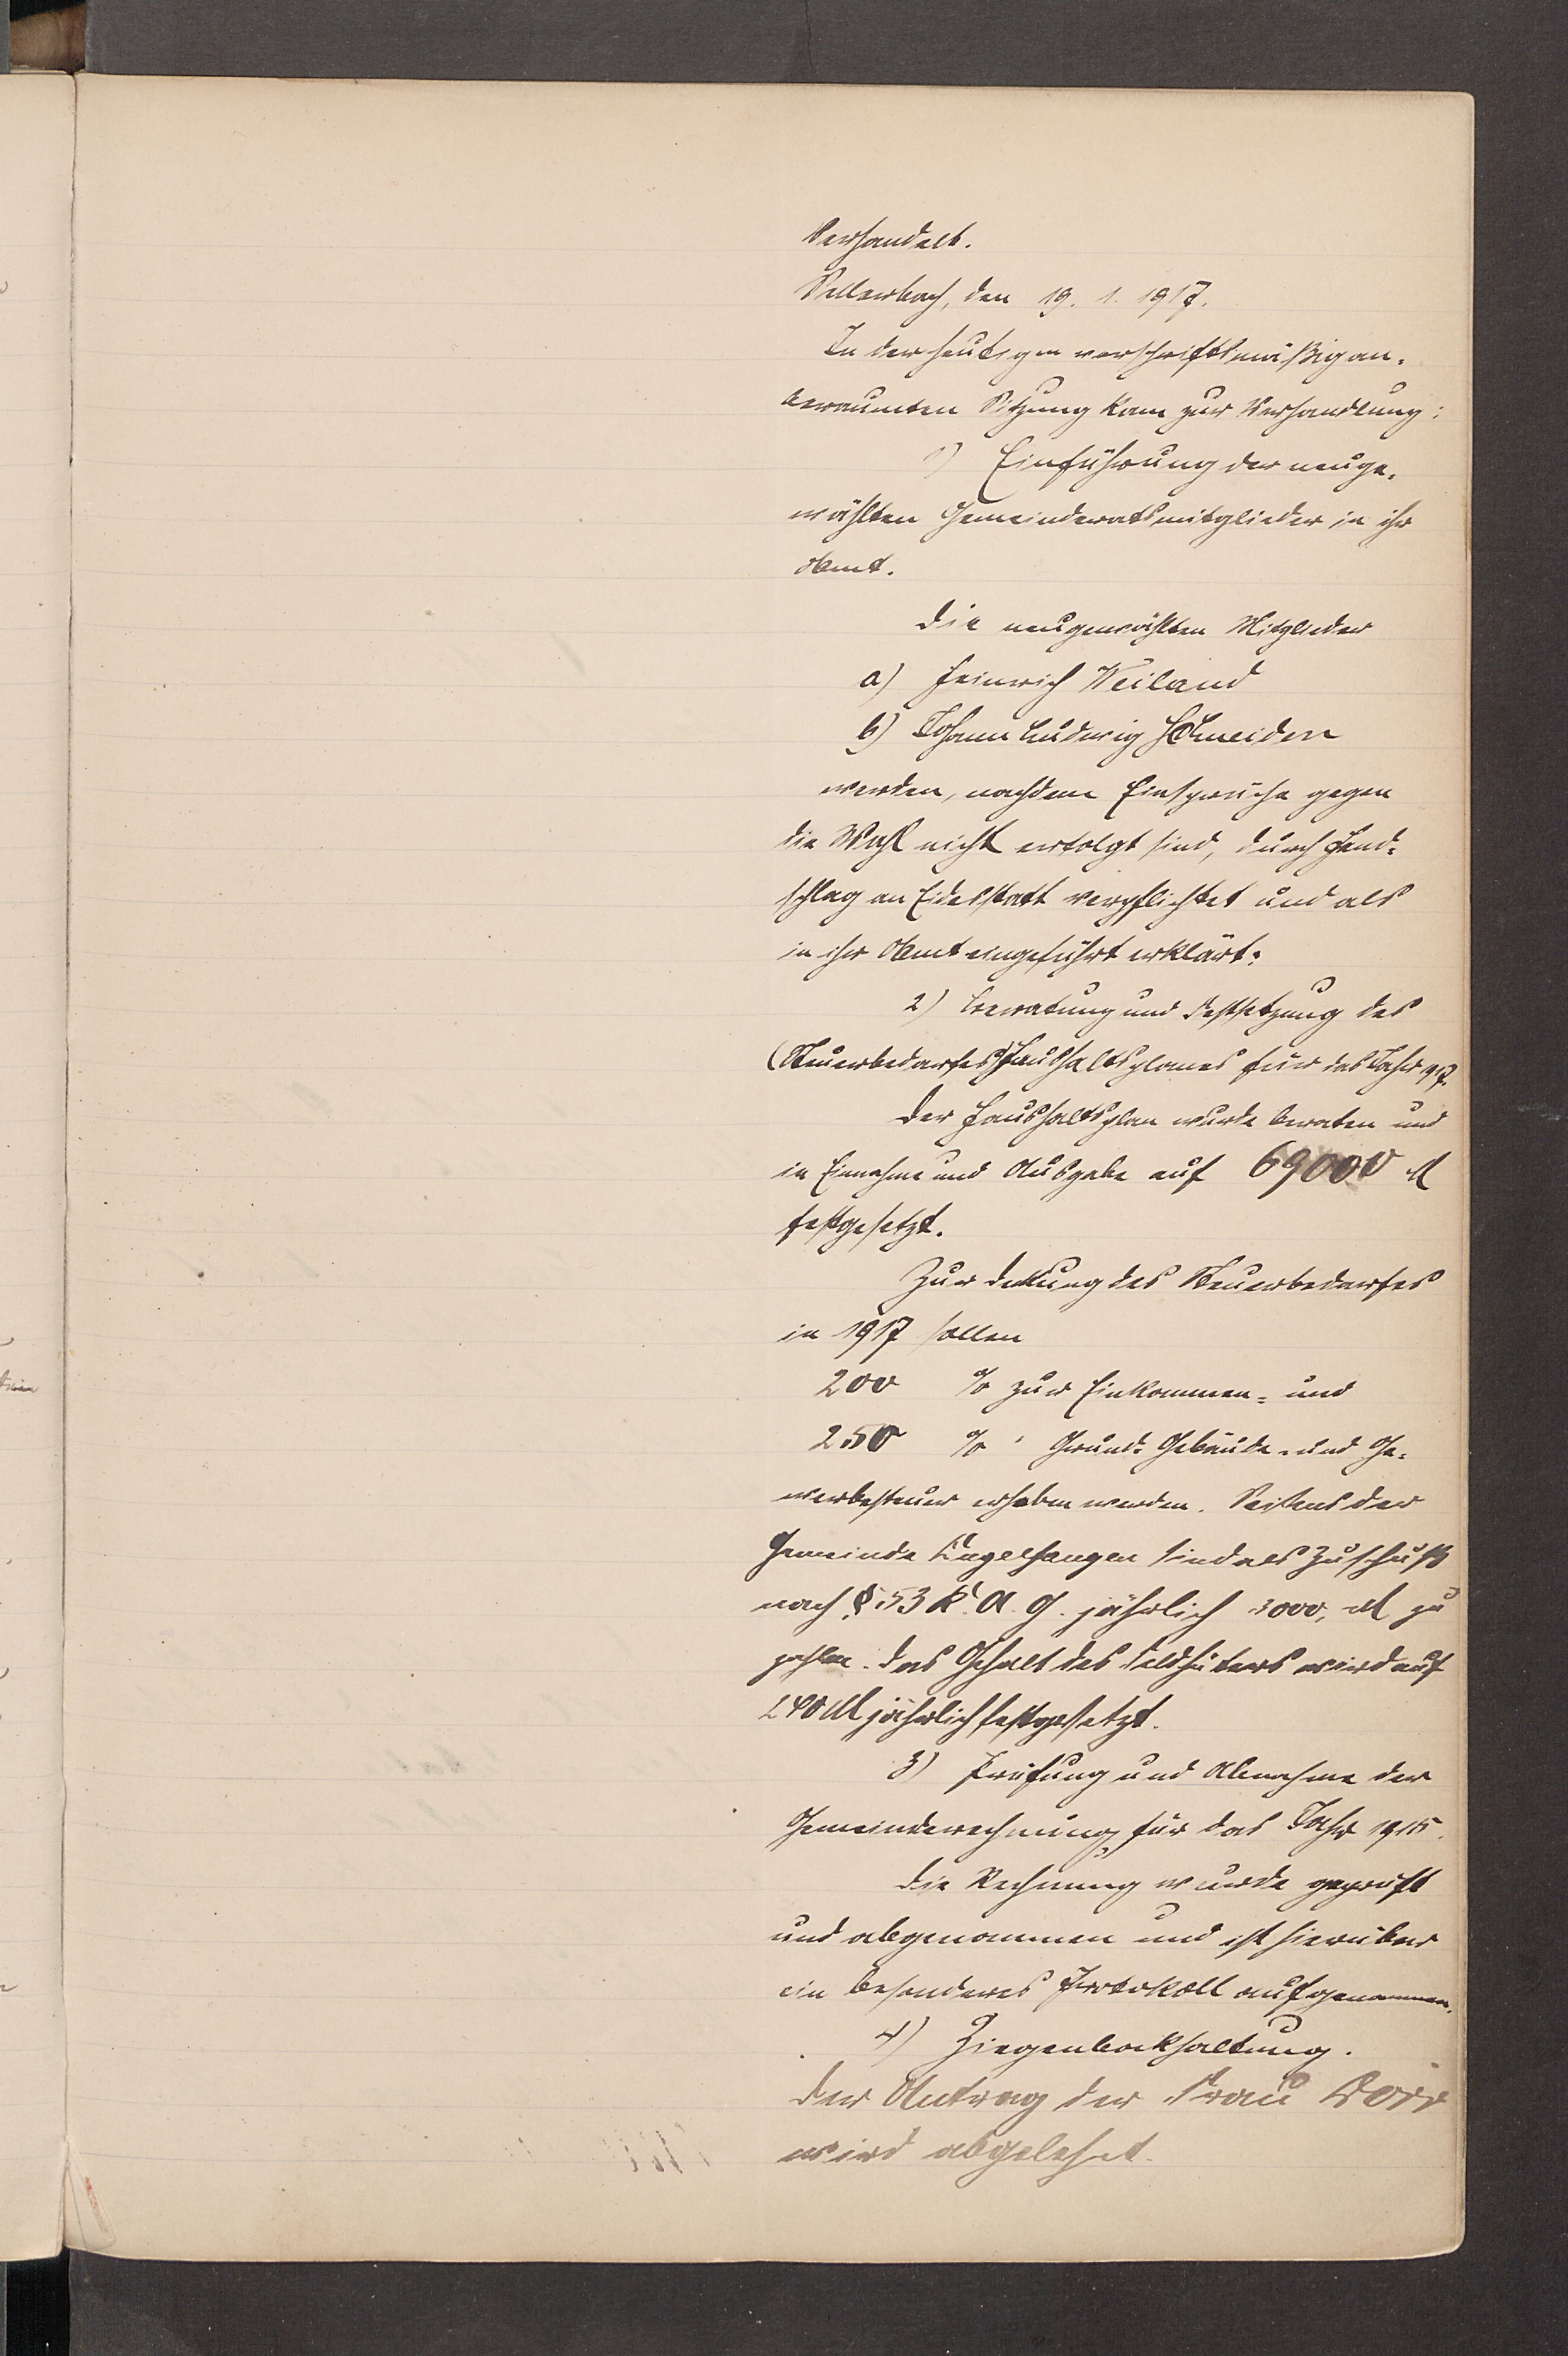 Verhandelt.
Sellerbach, den 19. 1. 1917.
In der heutigen vorschriftsmäßig an-
beraumten Sitzung kam zur Verhandlung:
1) Einführung der neuge-
wählten Gemeinderatsmitglieder in ihr
Amt.
Die neugewählten Mitglieder
a) Heinrich Weiland
b) Johann Ludwig Schneider
werden, nachdem Einsprüche gegen
die Wahl nicht erfolgt sind, durch Hand-
schlag an Eidesstatt verpflichtet und als
in ihr Amt eingeführt erklärt.
2) Beratung und Festsetzung des
(Steuerbedarfes) Haushaltsplanes für das Jahr 1917.
Der Haushaltsplan wurde beraten und
in Einnahme und Ausgabe auf 69000 M
festgesetzt.
Zur Deckung des Steuerbedarfes
in 1917 sollen
200 % zur Einkommen- und
250 % " Grund- Gebäude- und Ge-
werbesteuer erhoben werden. Seitens der
Gemeinde sind als Zuschuß
nach § 53 K. A. G. jährlich 3000, M zu
zahlen. Das Gehalt des Feldhüters wird auf
240 M jährlich festgesetzt.
3) Prüfung und Abnahme der
Gemeinderechnung für das Jahr 1915.
Die Rechnung wurde geprüft
und abgenommen und ist hierüber
ein besonderes Protokoll aufgenommen.
4) Ziegenbockhaltung.
Der Antrag der Frau Dörr
wird abgelehnt.